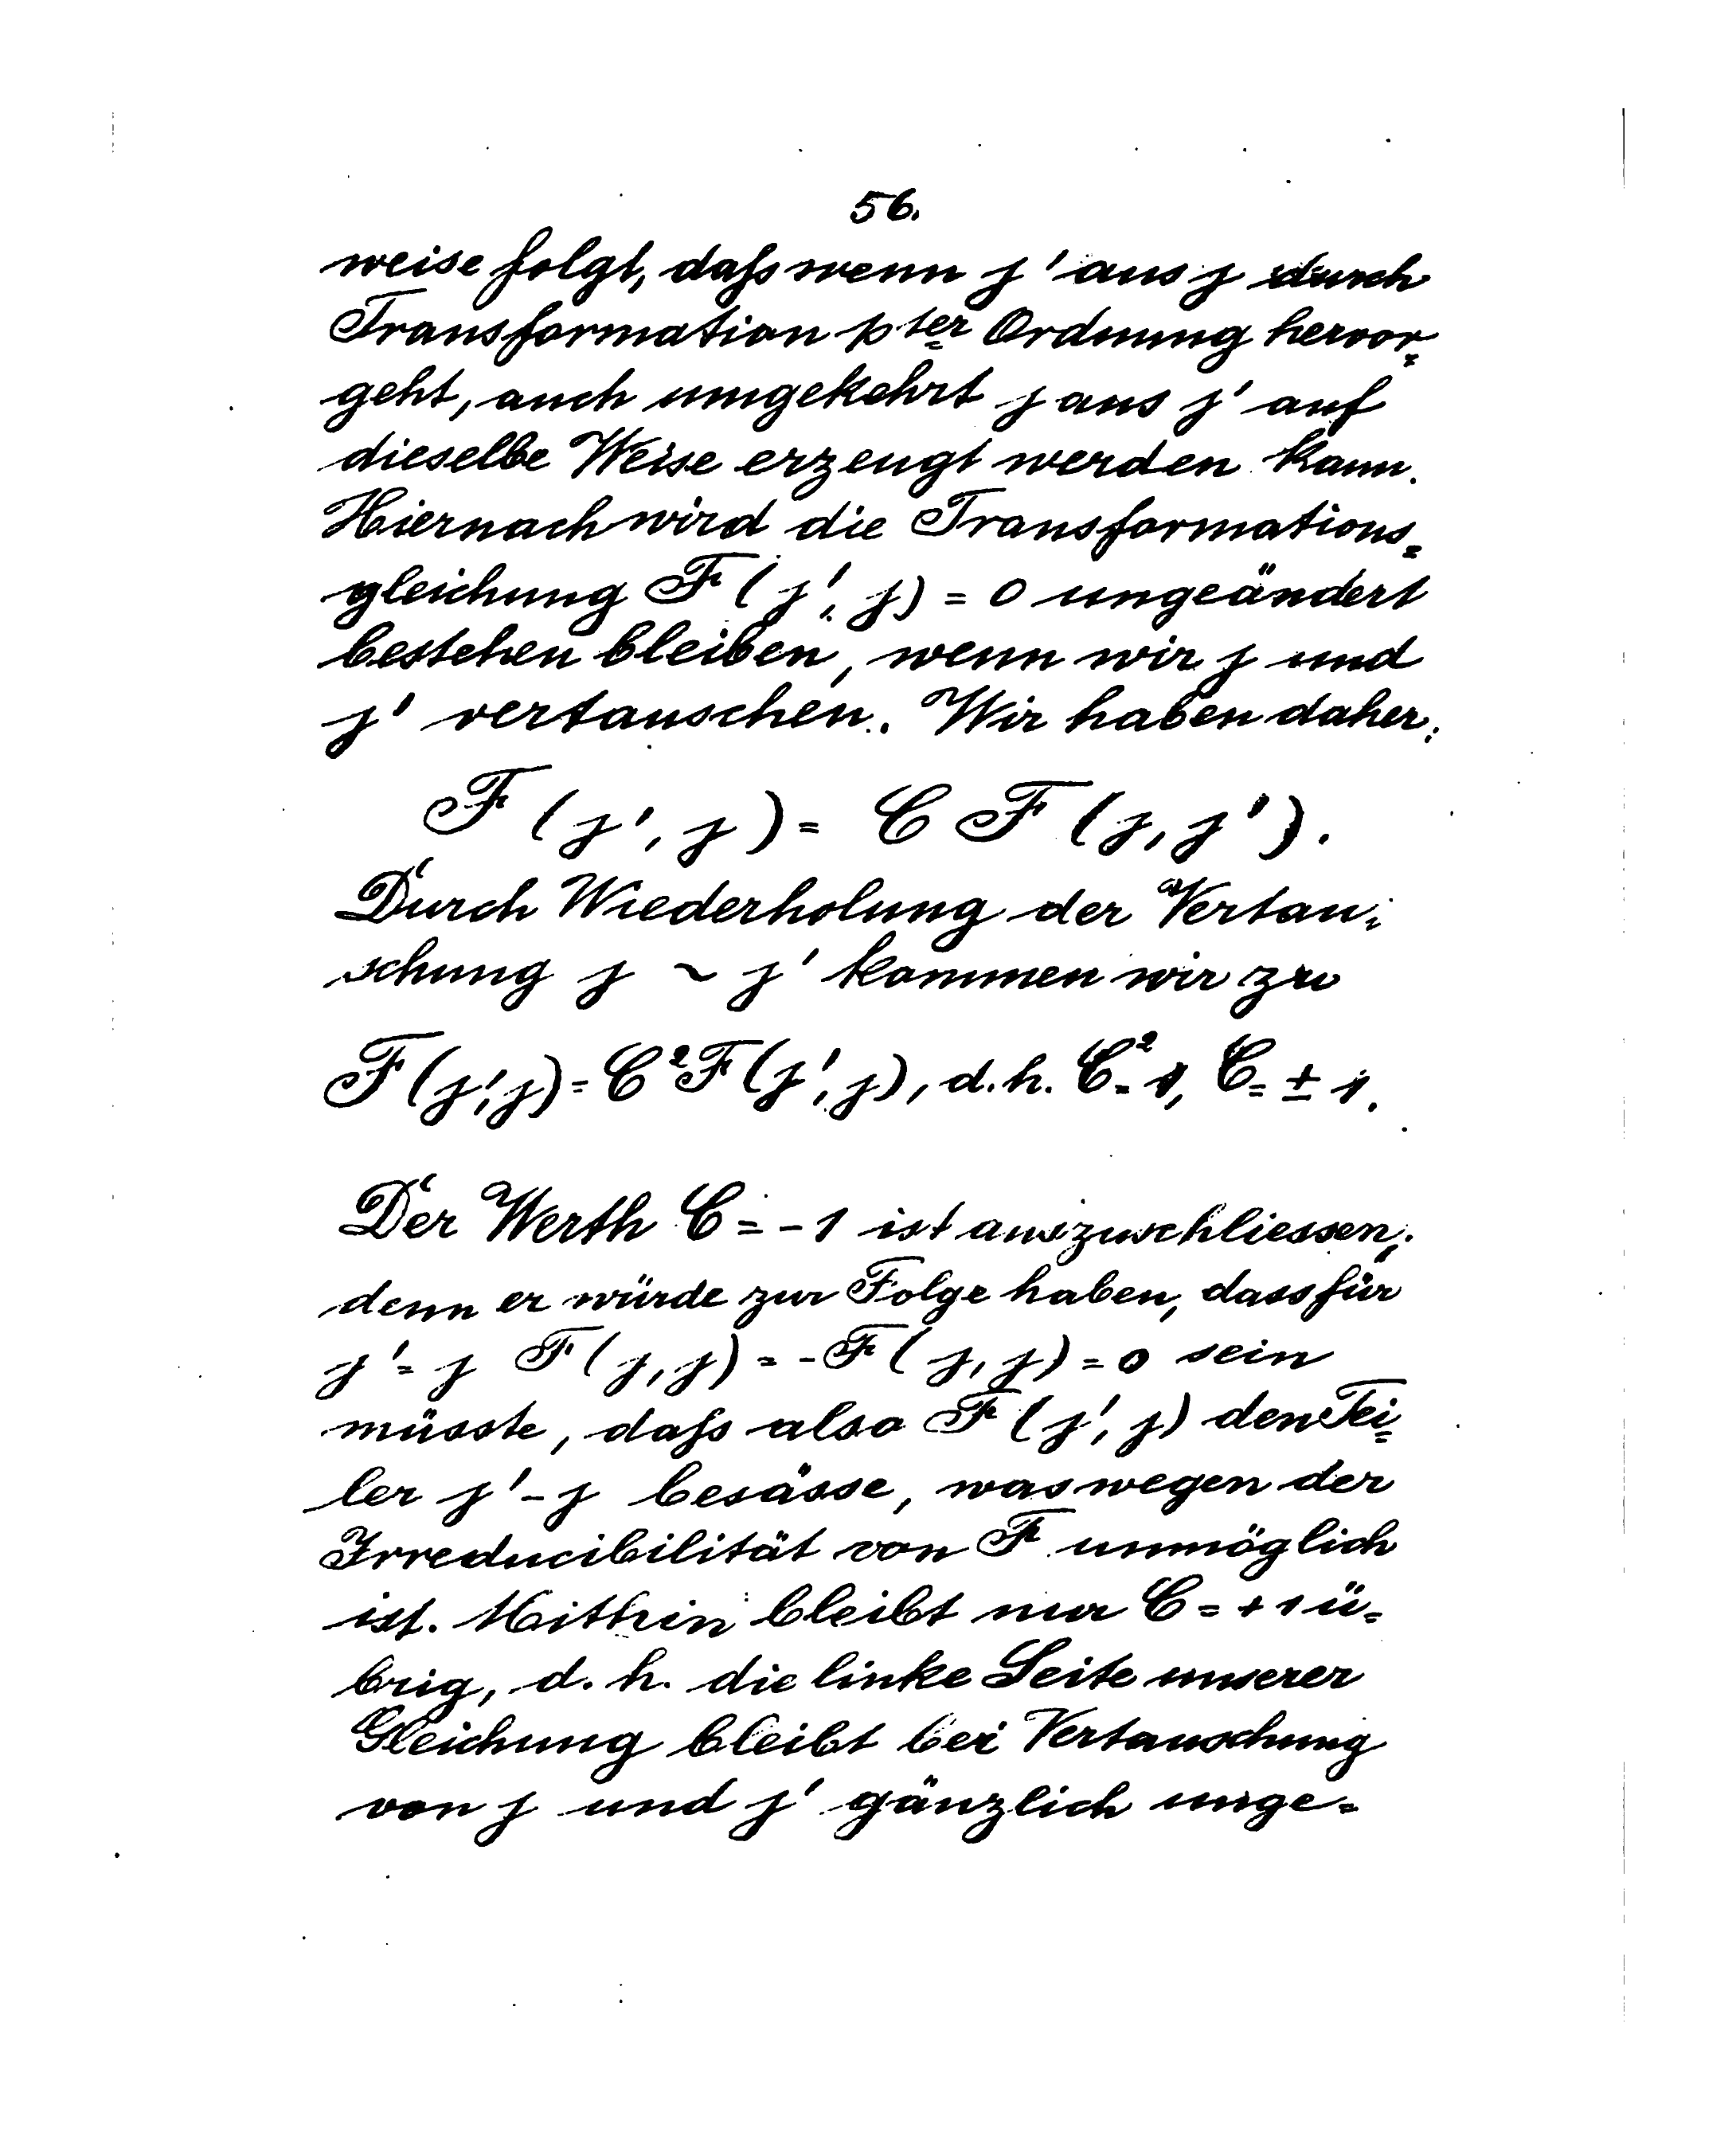 56.
weise folgt, daſs wenn j' aus j durch
Transformation pter Ordnung hervor=
geht, auch umgekehrt j aus j' auf
dieselbe Weise erzeugt werden kann.
Hiernach wird die Transformations=
gleichung F (j', j) = 0 ungeändert
bestehen bleiben, wenn wir j und
j' vertauschen. Wir haben daher:
F (j', j) = C F (j, j').
Durch Wiederholung der Vertau=
schung j ~ j' kommen wir zu
F (j', j) = C² F (j', j), d. h. C² = 1, C = ± 1.
Der Werth C = - 1 ist auszuschliessen,
denn er würde zur Folge haben, dass für
j' = j F (j, j) = - F (j, j) = 0 sein
müsste, daſs also F (j', j) den Tei=
ler j' - j besässe, was wegen der
Irreducibilität von F unmöglich
ist. Mithin bleibt nur C = + 1 ü=
brig, d. h. die linke Seite unserer
Gleichung bleibt bei Vertauschung
von j und j' gänzlich unge=